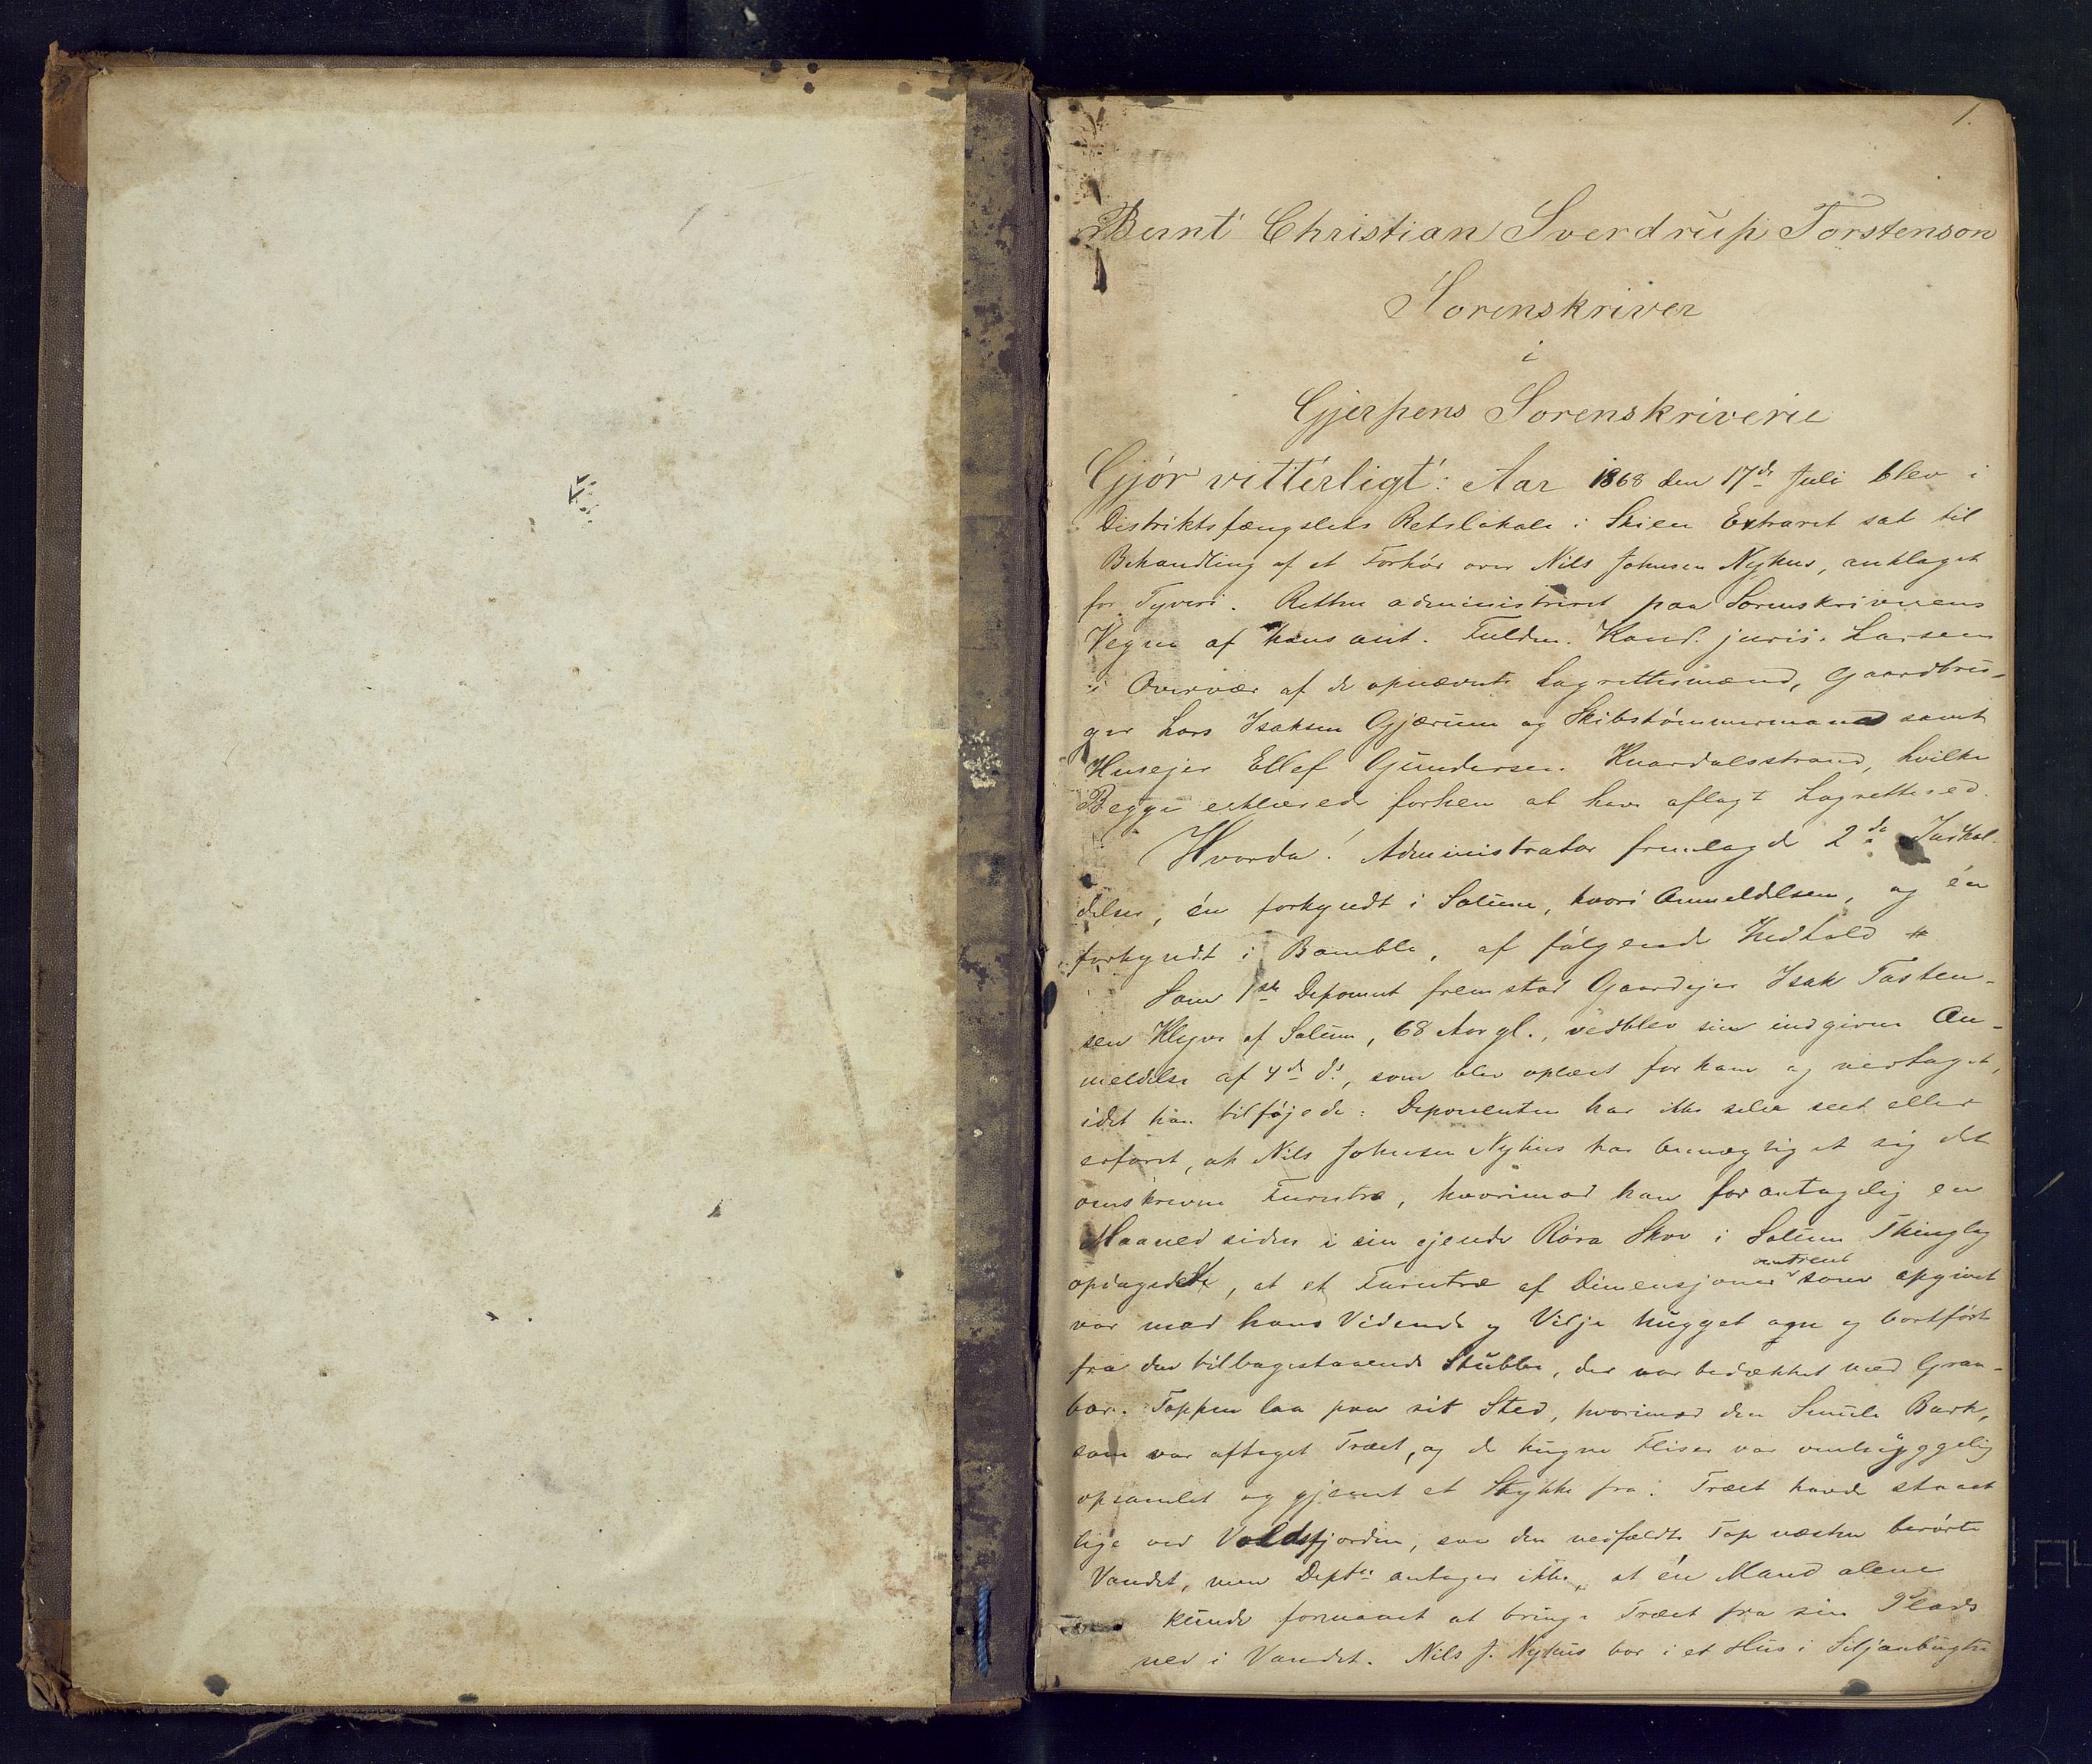 1.
Bernt Christian Sverdrup Torstenson
Sorenskriver
i
Gjerpens Sorenskriverie
Gjör vitterligt: Aar 1868 den 17de Juli blev i
Distriktsfængslets Retslokale i Skien Extraret sat til
Behandling af et Forhör over Nils Johnsen Nyhus, anklaget
for Tyveri. Retten administreret paa Sorenskriverens
Vegne af hans aut. Fuldm. Kand. juris. Larsen
i Overvær af de opnævnte Lagrettesmænd, Gaardbru-
ger Lars Isaksen Gjærum og Skibstömmermand samt
Husejer Ellef Gundersen Knardalsstrand, hvilke
Begge erklærede forhen at have aflagt Lagrettesed.
Hvorda! Administrator fremlagde 2de Indkal-
delser, én forkyndt i Solum, hvori Anmeldelsen, og én
forkyndt i Bamble, af fölgende Indhold #
Som 1ste Deponent fremstod Gaardejer Isak Tosten-
sen Klyve af Solum, 68 Aar gl., vedblev sin indgivne An-
meldelse af 4de ds, som blev oplæst for ham og vedtaget,
idet han tilföjede: Deponenten har ikke selv seet eller
erfaret, at Nils Johnsen Nyhus har bemægtiget sig det
omskrevne Furutræ, hvorimod han for antagelig en
Maaned siden i sin ejende Röra Skov i Solum Thinglag
opdagede, at et Furutræ af Dimensjoner omtrent som opgivet
var mod hans Vidende og Vilje hugget og bortfört
fra den tilbagestaaende Stubbe, der var bedækket med Gran-
bar. Toppen laa paa sit Sted, hvorimod den Smule Bark,
som var aftaget Træet, og de hugne Fliser var omhyggelig
opsamlet og gjemt et Stykke fra. Træet havde staaet
lige ved Voldsfjorden, saa den nedfældte Top næsten berörte
Vandet, men Deptn antager ikke, at én Mand alene
kunde formaaet at bringe Træet fra sin Plads
ned i Vandet. Nils J. Nyhus bor i et Hus i